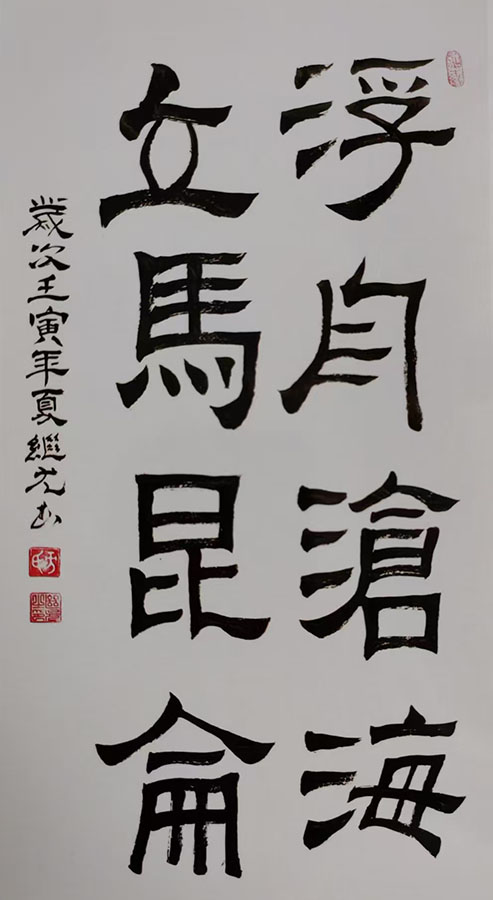 浮舟滄海
立馬昆侖
歲次壬寅年夏繼光書